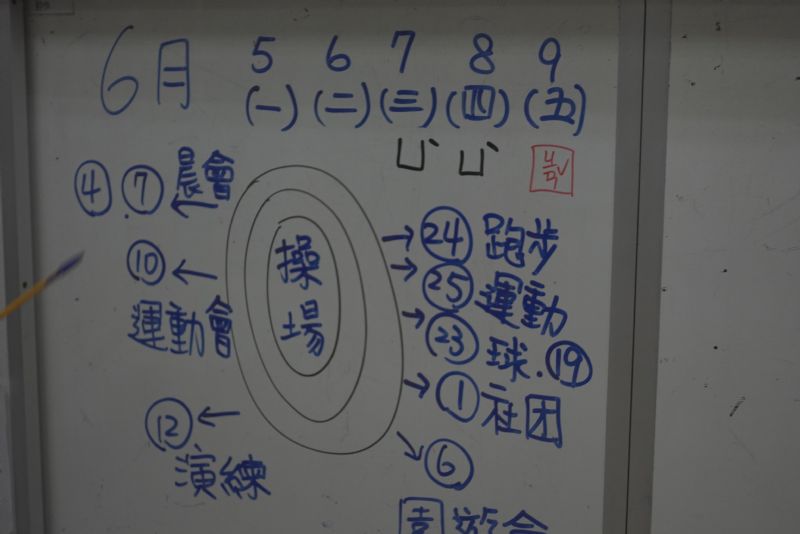 6月 5 6 7 8 9
(一) (二) (三) (四) (五)
ㄩˋ ㄩˋ
④ ⑦ 晨會
⑩
運動會
⑫
演練
操
場
㉔ 跑步
㉕ 運動
㉓ 球.⑲
① 社团
⑥
園遊会